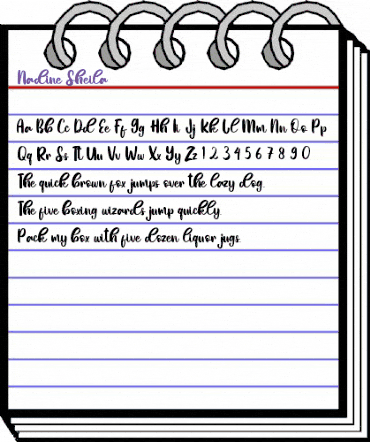 Nadine Sheila
Aa Bb Cc Dd Ee Ff Gg Hh Ii Jj Kk Ll Mm Nn Oo Pp
Qq Rr Ss Tt Uu Vv Ww Xx Yy Zz 1 2 3 4 5 6 7 8 9 0
The quick brown fox jumps over the lazy dog.
The five boxing wizards jump quickly.
Pack my box with five dozen liquor jugs.